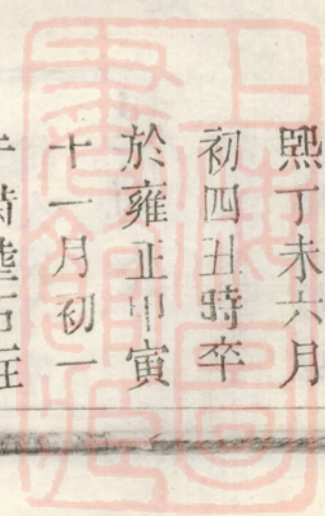 熙丁未六月
初四丑時卒
於雍正甲寅
十一月初一